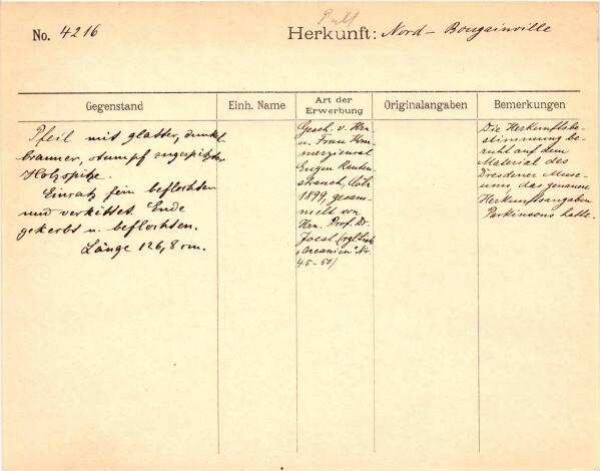 No. 4216
Herkunft: Nord - Bougainville
Gegenstand
Einh. Name
Art der Erwerbung
Originalangaben
Bemerkungen
Pfeil mit glatter, dunkel-
brauner, stumpf zugespitzter
Holzspitze.
Einsatz fein beflochten
und verkittet. Ende
gekerbt u. beflochten.
Länge 126,8 cm.
Gesch. v. Hrn
u. Frau Kom-
merzienrat
Eugen Rauten-
strauch, Cöln
1899, gesam-
melt von
Hrn. Prof. Dr.
Joest (vgl.
45-50)
Die Herkunftsbe-
stimmung be-
ruht auf dem
Material des
Dresdener Muse-
ums, das genaue
Herkunftsangaben
Parkinsons hatte.